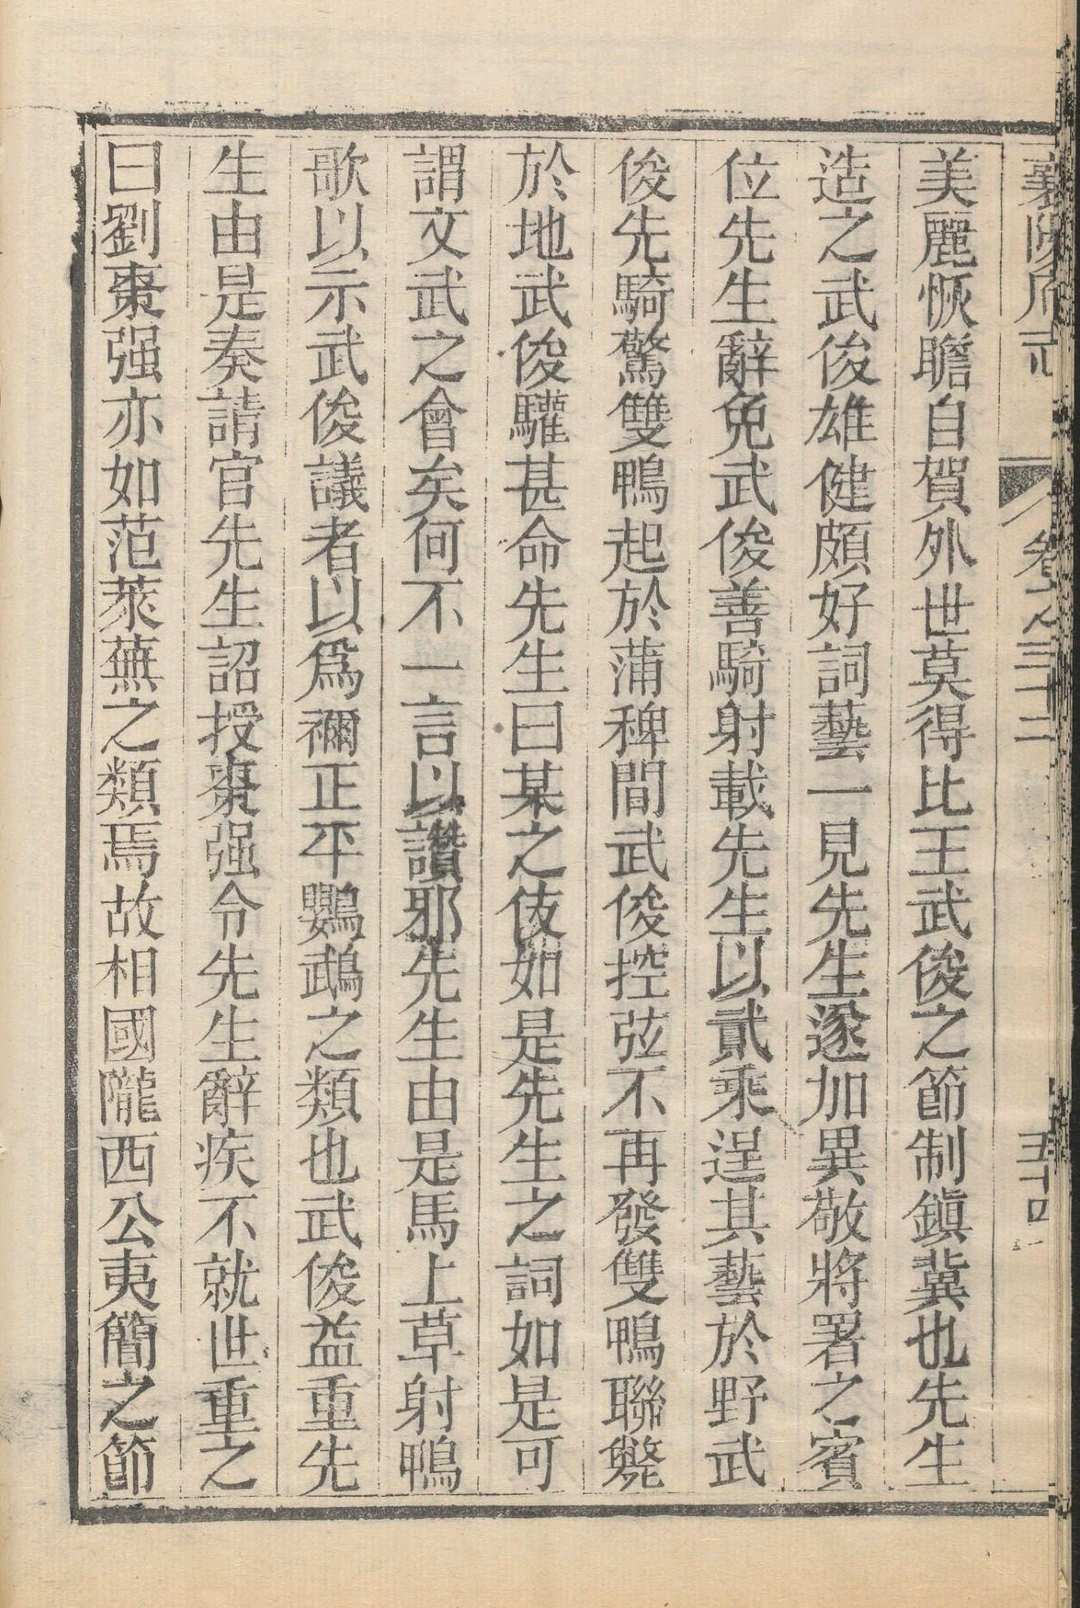 襄陽府志 卷之三十二 五十四
美麗恢贍自賀外世莫得比王武俊之節制鎭冀也先生
造之武俊雄健頗好詞藝一見先生遂加異敬將署之賓
位先生辭免武俊善騎射載先生以貳乘逞其藝於野武
俊先騎驚雙鴨起於蒲稗間武俊控弦不再發雙鴨聯斃
於地武俊驩甚命先生曰某之伎如是先生之詞如是可
謂文武之會矣何不一言以讚邪先生由是馬上草射鴨
歌以示武俊議者以爲禰正平鸚鵡之類也武俊益重先
生由是奏請官先生詔授棗强令先生辭疾不就世重之
曰劉棗强亦如范萊蕪之類焉故相國隴西公夷簡之節